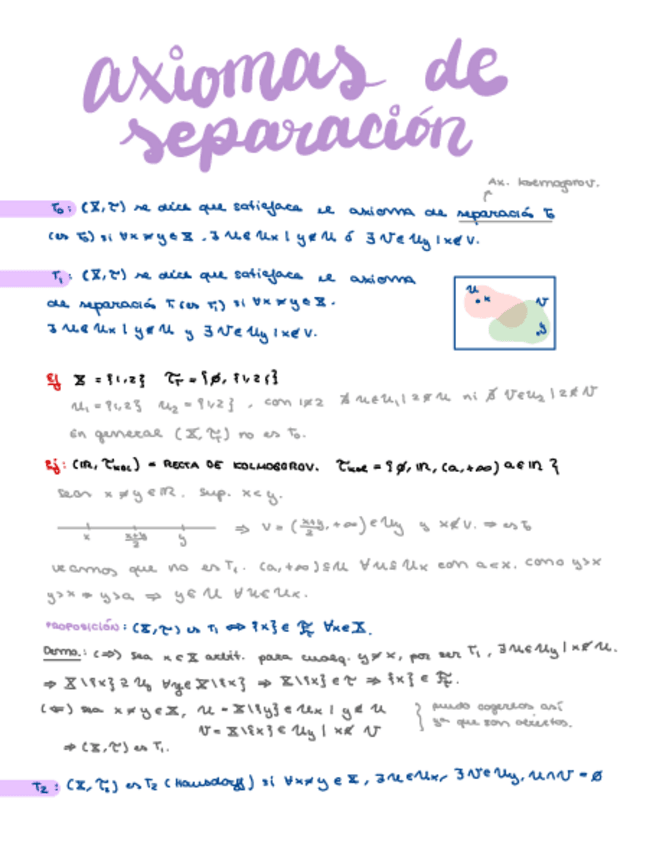 axiomas de
separación
Ax. Kolmogorov.
T₀: (X, τ) se dice que satisface el axioma de separació T₀
(es T₀) si ∀x≠y∈X, ∃ U∈Uₓ | y∉U ó ∃ V∈U_y | x∉V.
T₁: (X, τ) se dice que satisface el axioma
de separació T₁(es T₁) si ∀x≠y∈X.
∃ U∈Uₓ | y∉U y ∃ V∈U_y | x∉V.
U x V y
Ej X = {1,2} τ_T = {∅, {1,2}}
U₁ = {1,2} U₂ = {1,2}, con 1≠2 ∄ U∈U₁ | 2∉U ni ∄ V∈U₂ | 2∉V
En general (X, τ_T) no es T₀.
Ej: (ℝ, τ_KOL) = RECTA DE KOLMOGOROV. τ_KOL = {∅, ℝ, (a,+∞) a∈ℝ}
sean x≠y∈ℝ. sup. x<y.
x (x+y)/2 y ⇒ V = ((x+y)/2, +∞)∈U_y y x∉V. ⇒ es T₀
veamos que no es T₁. (a,+∞)⊆U ∀U∈Uₓ con a<x. como y>x
y>x ⇒ y>a ⇒ y∈U ∀U∈Uₓ.
PROPOSICIÓN: (X, τ) es T₁ ⇔ {x}∈ F_τ ∀x∈X.
Demo.: (⇒) sea x∈X arbit. para cualq. y≠x, por ser T₁, ∃U∈U_y | x∉U.
⇒ X\{x}⊇U_y ∀y∈X\{x} ⇒ X\{x}∈τ ⇒ {x}∈F_τ.
(⇐) sea x≠y∈X, U = X\{y}∈Uₓ | y∉U } puedo cogerlos así
V = X\{x}∈U_y | x∉V ya que son abiertos.
⇒ (X, τ) es T₁.
T₂: (X, τ) es T₂ (Hausdorff) si ∀x≠y∈X, ∃U∈Uₓ, ∃V∈U_y, U∩V = ∅